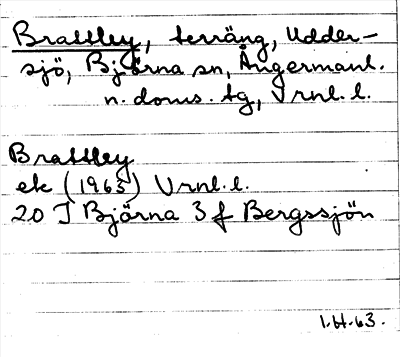 Brattley, terräng, Udder-
sjö, Björna sn, Ångermanl.
n. doms. tg, Vrnl. l.
Brattley
ek (1963) Vrnl. l.
20 I Björna 3 f Bergssjön
63.